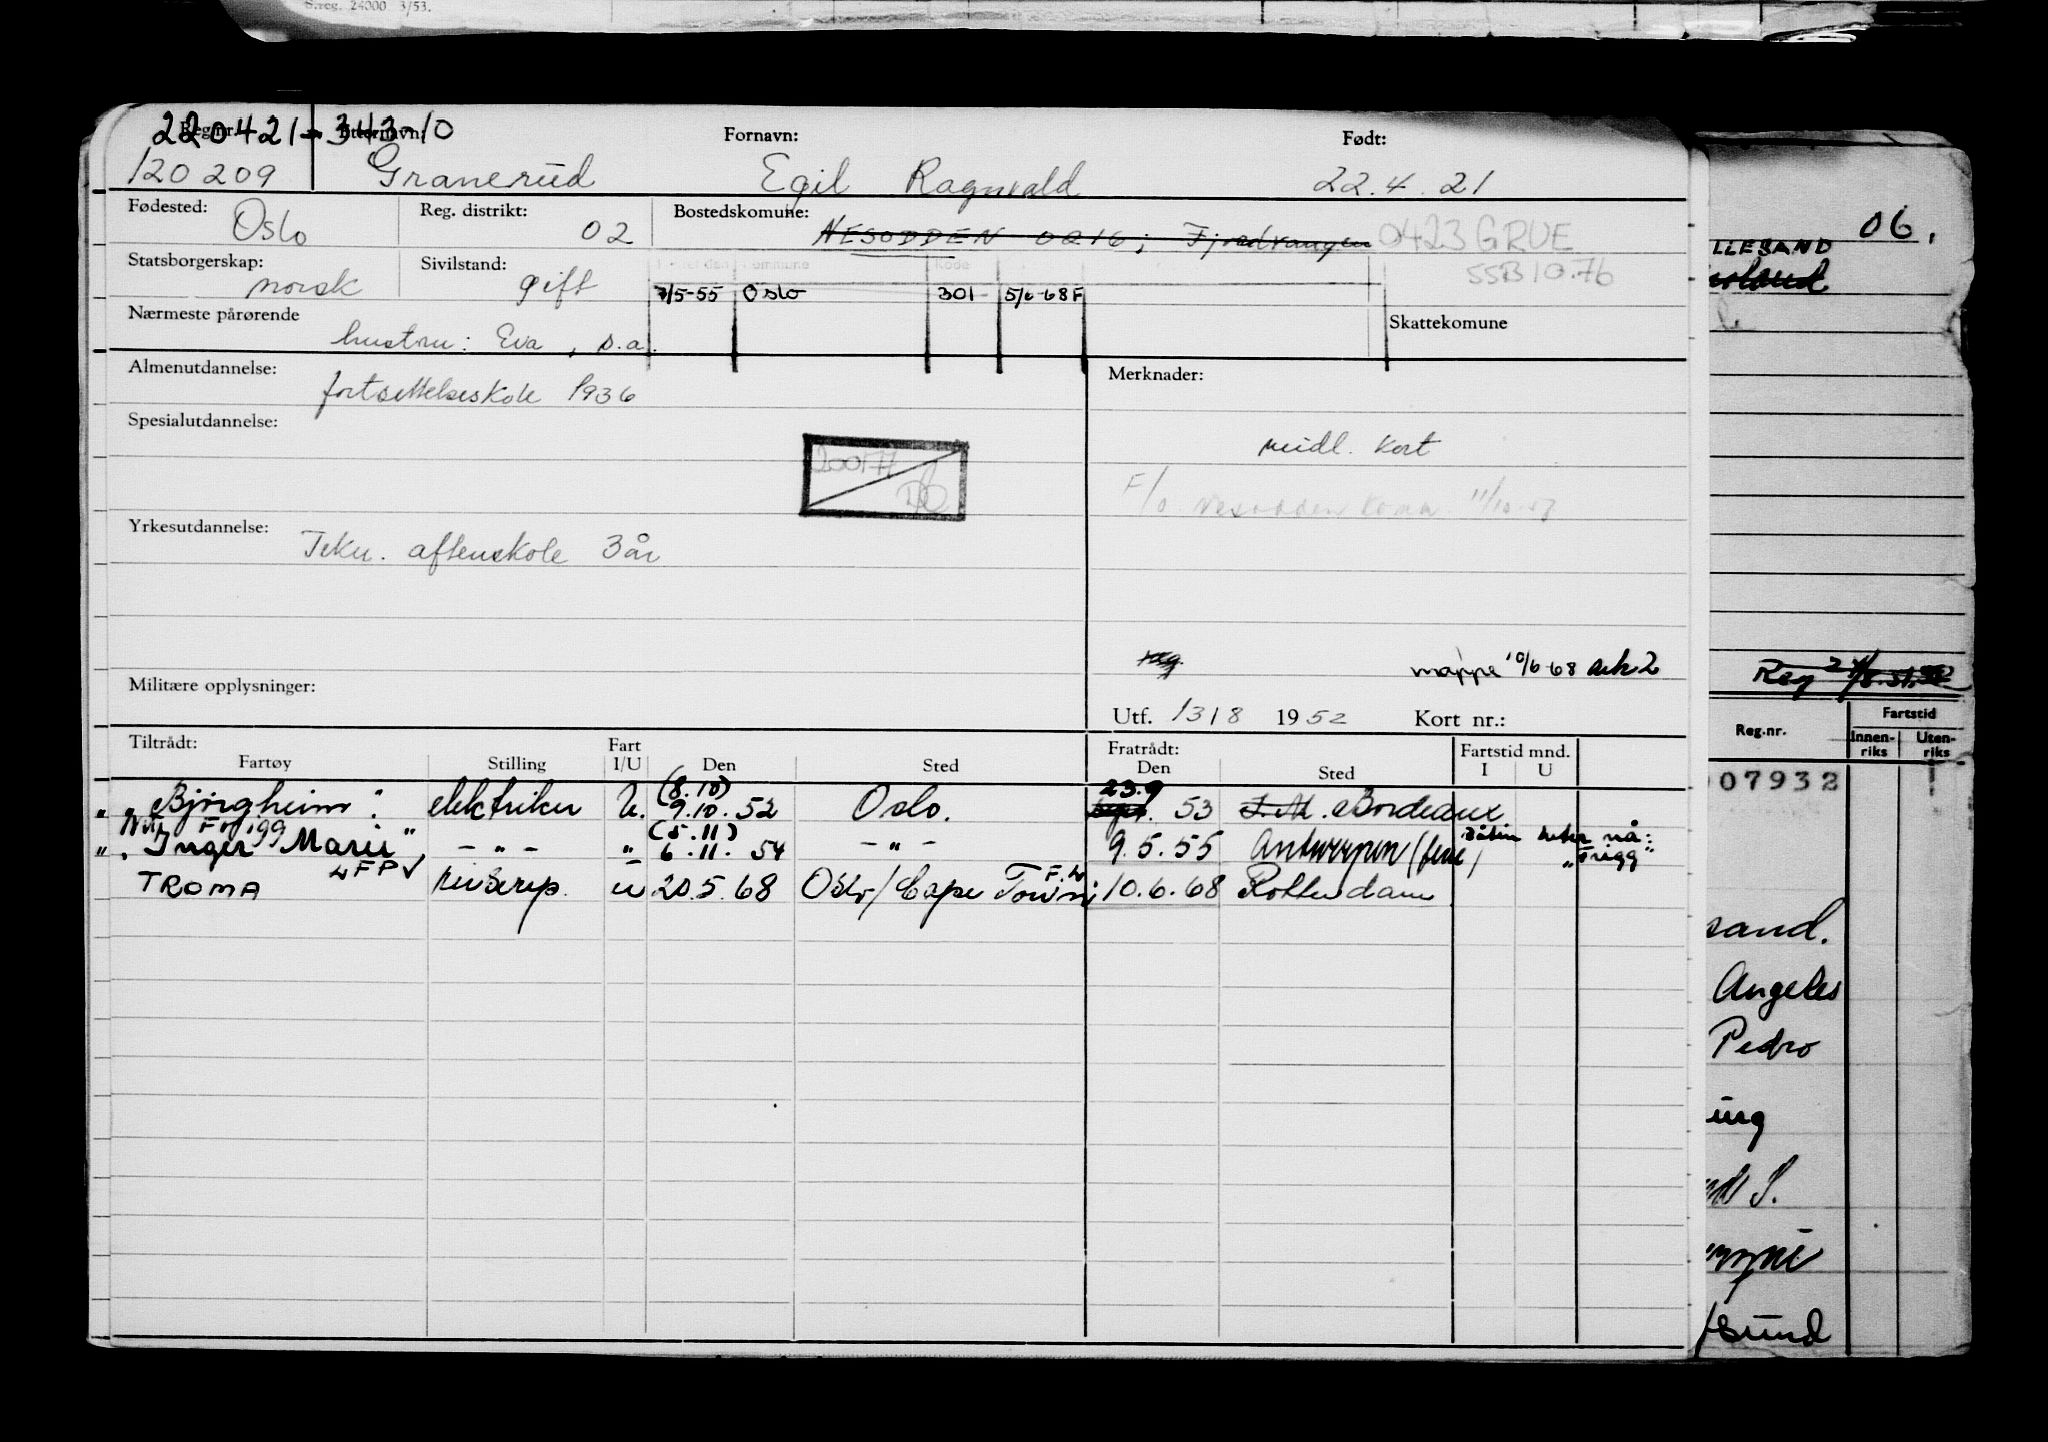 S.reg. 24000 3/53.
220421-343-10
Reg.nr. Etternavn: Fornavn: Født:
120209 Granerud Egil Ragnvald 22.4.21
Fødested: Oslo Reg. distrikt: 02 Bostedskomune: NESODDEN 0216; Fjordvangen 0423 GRUE
SSB 10.76
Statsborgerskap: norsk Sivilstand: gift
7/5-55 Oslo 301- 5/6-68 F
Nærmeste pårørende hustru: Eva, s.a. Skattekomune
Almenutdannelse: fortsettelseskole 1936 Merknader:
Spesialutdannelse:
midl. kort
200177
F/o Nesodden komm. 11/10-57
Yrkesutdannelse: Tekn. aftenskole 3 år
mappe 10/6-68 ark 2
Militære opplysninger:
Utf. 1318 1952 Kort nr.:
Tiltrådt: Fart Fratrådt: Fartstid mnd.
Fartøy Stilling I/U Den Sted Den Sted I U
(8.10) 23.9
"Bjørgheim" elektriker U. 9.10.52 Oslo. 53 Bordeaux
Nå: Frigg (5.11) Båten heter nå:
"Inger Marie" - " - " 6.11.54 - " - 9.5.55 Antwerpen "Frigg"
TROMA WFP u 20.5.68 Oslo/Cape Town 10.6.68 Rotterdam
06.
LLESAND
Reg.nr. Fartstid
Innen-riks Uten-riks
07932
sand.
Angeles
Pedro
S.
sund